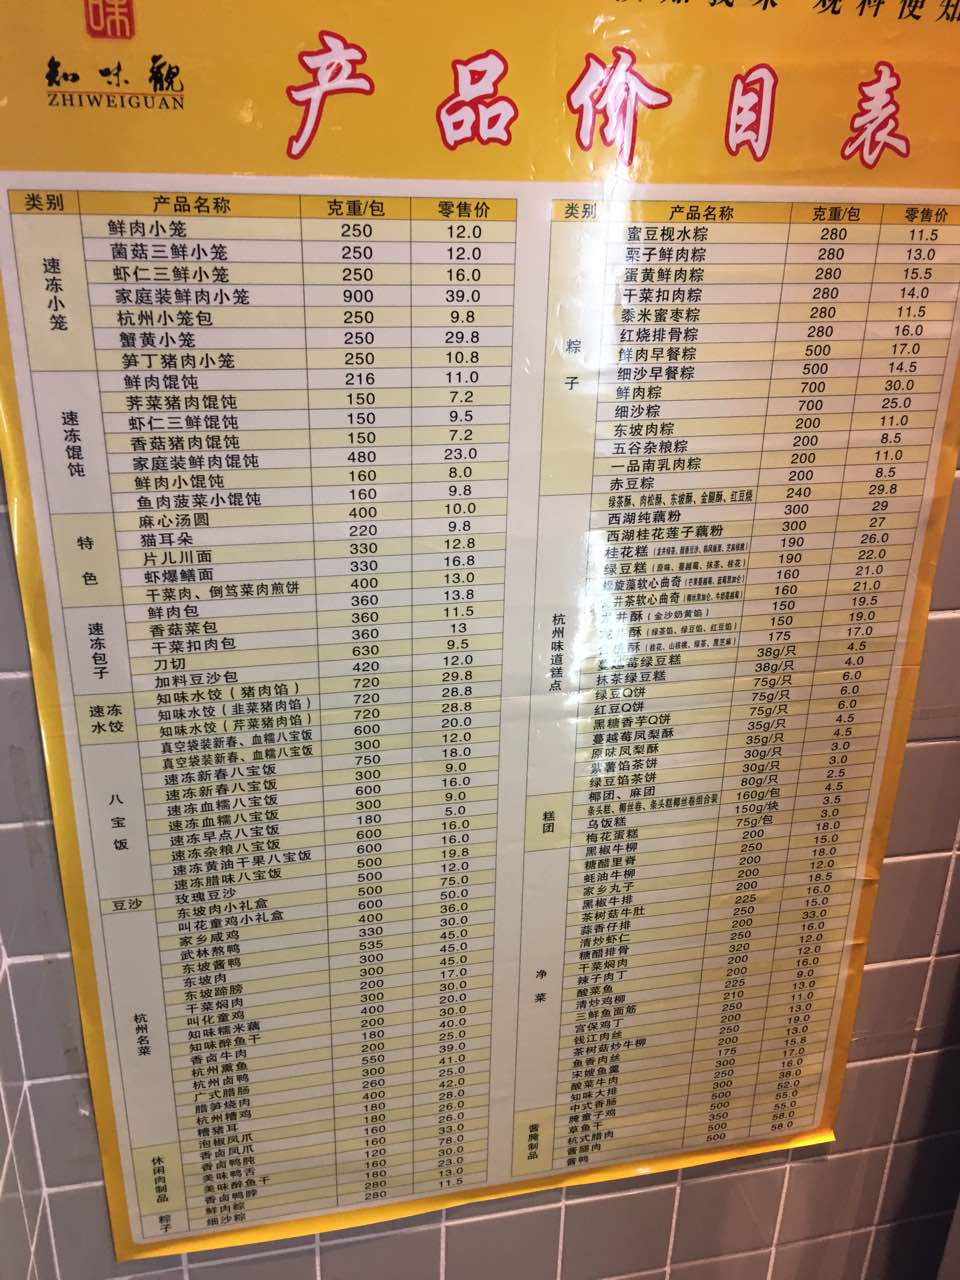 味
知味觀
ZHIWEIGUAN
产品价目表
类别 产品名称 克重/包 零售价
速冻小笼
鲜肉小笼 250 12.0
菌菇三鲜小笼 250 12.0
虾仁三鲜小笼 250 16.0
家庭装鲜肉小笼 900 39.0
杭州小笼包 250 9.8
蟹黄小笼 250 29.8
笋丁猪肉小笼 250 10.8
速冻馄饨
鲜肉馄饨 216 11.0
荠菜猪肉馄饨 150 7.2
虾仁三鲜馄饨 150 9.5
香菇猪肉馄饨 150 7.2
家庭装鲜肉馄饨 480 23.0
鲜肉小馄饨 160 8.0
鱼肉菠菜小馄饨 160 9.8
特色
麻心汤圆 400 10.0
猫耳朵 220 9.8
片儿川面 330 12.8
虾爆鳝面 330 16.8
干菜肉、倒笃菜肉煎饼 400 13.0
速冻包子
鲜肉包 360 13.8
香菇菜包 360 11.5
干菜扣肉包 360 13
刀切 630 9.5
加料豆沙包 420 12.0
速冻水饺
知味水饺（猪肉馅） 720 29.8
知味水饺（韭菜猪肉馅） 720 28.8
知味水饺（芹菜猪肉馅） 720 28.8
八宝饭
真空袋装新春、血糯八宝饭 600 20.0
真空袋装新春、血糯八宝饭 300 12.0
速冻新春八宝饭 750 18.0
速冻新春八宝饭 300 9.0
速冻血糯八宝饭 600 16.0
速冻血糯八宝饭 300 9.0
速冻早点八宝饭 180 5.0
速冻杂粮八宝饭 600 16.0
速冻黄油干果八宝饭 600 16.0
速冻腊味八宝饭 500 19.8
豆沙
玫瑰豆沙 500 12.0
杭州名菜
东坡肉小礼盒 500 75.0
叫花童鸡小礼盒 600 50.0
家乡咸鸡 400
武林熬鸭 330 36.0
东坡酱鸭 535 45.0
东坡肉 300 45.0
东坡蹄膀 300 45.0
干菜焖肉 200 17.0
叫化童鸡 300 30.0
知味糯米藕 400 20.0
知味醉鱼干 200 30.0
香卤牛肉 180 40.0
杭州熏鱼 200 25.0
杭州卤鸭 550 39.0
广式腊肠 300 41.0
腊笋烧肉 260 25.0
杭州糟鸡 400 42.0
糟猪耳 180 28.0
休闲肉制品
泡椒凤爪 180 26.0
香卤凤爪 160 26.0
香卤鸭肫 160 33.0
美味鸭舌 120 78.0
美味醉鱼干 160 30.0
香卤鸭脖 180 23.0
粽子
鲜肉粽 280 13.0
细沙粽 280 11.5
类别 产品名称 克重/包 零售价
粽子
蜜豆枧水粽 280 11.5
栗子鲜肉粽 280 13.0
蛋黄鲜肉粽 280 15.5
干菜扣肉粽 280 14.0
黍米蜜枣粽 280 11.5
红烧排骨粽 280 16.0
鲜肉早餐粽 500 17.0
细沙早餐粽 500 14.5
鲜肉粽 700 30.0
细沙粽 700 25.0
东坡肉粽 200 11.0
五谷杂粮粽 200 8.5
一品南乳肉粽 200 11.0
赤豆粽 200 8.5
杭州味道糕点
绿茶酥、肉松酥、东坡酥、金腿酥、红豆烧 240 29.8
西湖纯藕粉 300 29
西湖桂花莲子藕粉 300 27
桂花糕 190 26.0
绿豆糕（原味、蔓越莓、抹茶、桂花） 190 22.0
螺旋藻软心曲奇 160 21.0
龙井茶软心曲奇 160 21.0
龙井酥（金沙奶黄馅） 150 19.5
龙井酥（绿茶馅、绿豆馅、红豆馅） 150 19.0
酥（桂花、山核桃、绿茶、黑芝麻） 175 17.0
蔓越莓绿豆糕 38g/只 4.0
抹茶绿豆糕 38g/只 4.0
绿豆Q饼 75g/只 6.0
红豆Q饼 75g/只 6.0
黑糖香芋Q饼 75g/只 6.0
蔓越莓凤梨酥 35g/只 4.5
原味凤梨酥 35g/只 4.5
紫薯馅茶饼 30g/只 3.0
绿豆馅茶饼 30g/只 3.0
糕团
椰团、麻团 80g/只 2.5
条头糕、椰丝卷、条头糕椰丝卷组合装 160g/包 4.5
乌饭糕 150g/块 3.5
梅花蛋糕 75g/包 3.0
净菜
黑椒牛柳 200 18.0
糖醋里脊 250 15.0
蚝油牛柳 200 18.0
家乡丸子 200 12.0
黑椒牛排 200 18.5
茶树菇牛肚 225 16.0
蒜香仔排 250 15.0
清炒虾仁 250 33.0
糖醋排骨 320 16.0
干菜焖肉 200 12.0
辣子肉丁 200 12.0
酸菜鱼 225 16.0
清炒鸡柳 210 9.0
三鲜鱼面筋 250 13.0
宫保鸡丁 200 11.0
钱江肉丝 250 13.0
茶树菇炒牛柳 200 19.0
鱼香肉丝 175 13.0
宋嫂鱼羹 300 15.8
酸菜牛肉 250 17.0
知味大排 300 16.0
酱腌制品
中式香肠 500 38.0
腌童子鸡 500 52.0
草鱼干 350 55.0
杭式腊肉 500 55.0
酱腿肉 500 58.0
酱鸭 58.0